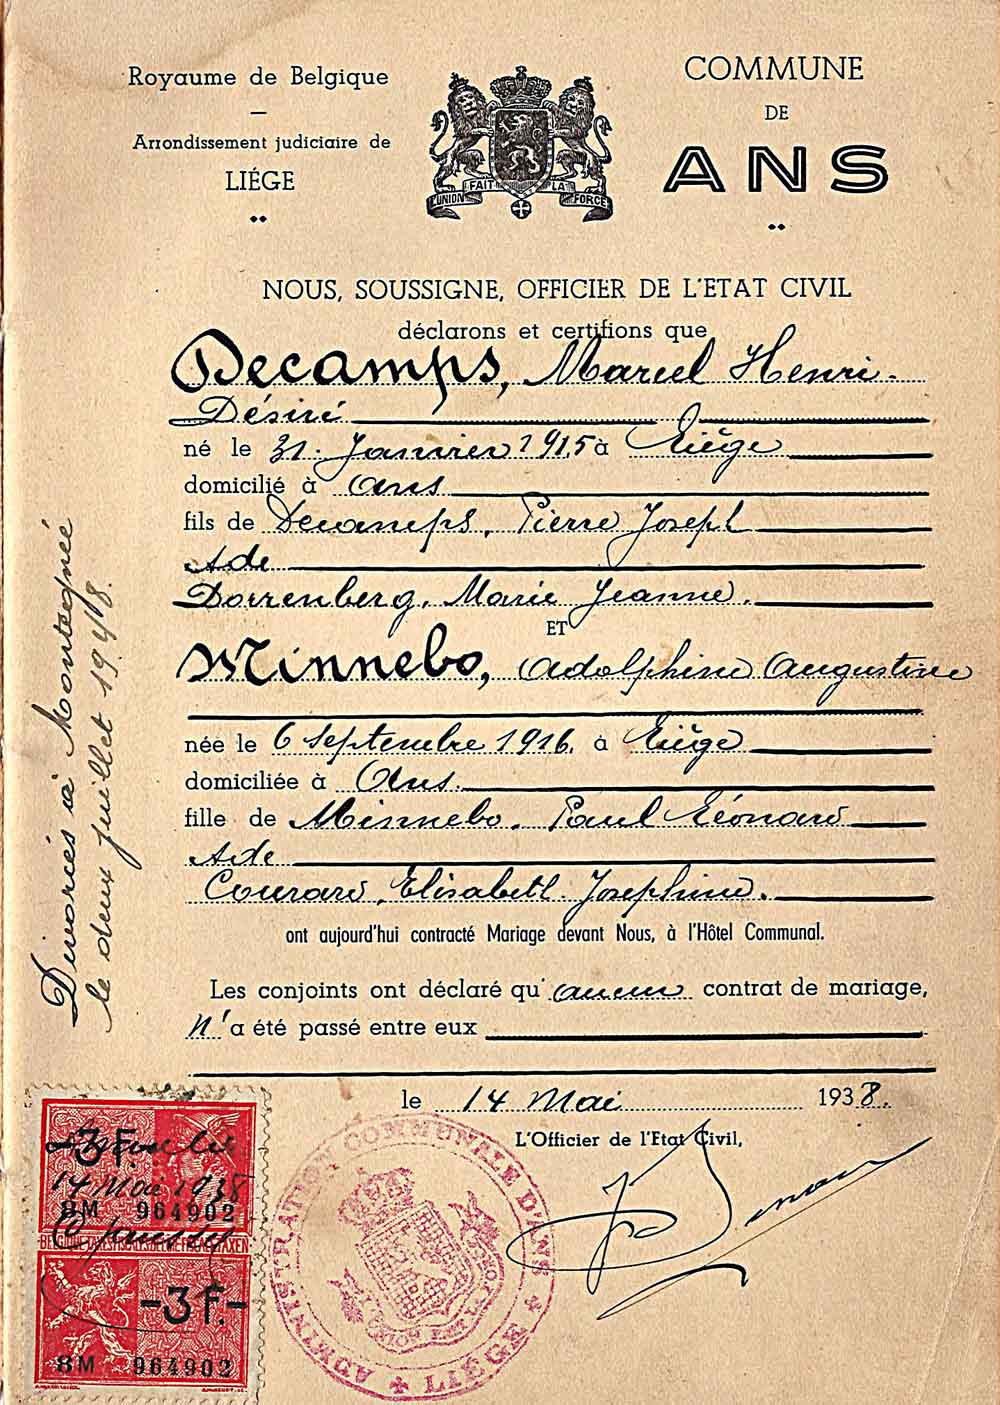 Royaume de Belgique
—
Arrondissement judiciaire de
LIÉGE
COMMUNE
DE
ANS
L'UNION FAIT LA FORCE
NOUS, SOUSSIGNE, OFFICIER DE L'ETAT CIVIL
déclarons et certifions que
Decamps, Marcel Henri
Désiré
né le 31 Janvier 1915 à Liège
domicilié à Ans
fils de Decamps, Pierre Joseph
& de
Dorrenberg, Marie Jeanne.
ET
Minnebo, Adolphine Augustine
née le 6 Septembre 1916. à Liège
domiciliée à Ans.
fille de Minnebo, Paul Léonard
& de
Courard, Elisabeth Josephine.
ont aujourd'hui contracté Mariage devant Nous, à l'Hôtel Communal.
Les conjoints ont déclaré qu'aucun contrat de mariage,
n'a été passé entre eux
le 14 Mai 1938.
L'Officier de l'Etat Civil,
Divorcés à Montegnée
le deux juillet 1948.
-3F.-
14 Mai 1938
8M 964902
-3F.-
8M 964902
ADMINISTRATION COMMUNALE D'ANS
LIÉGE